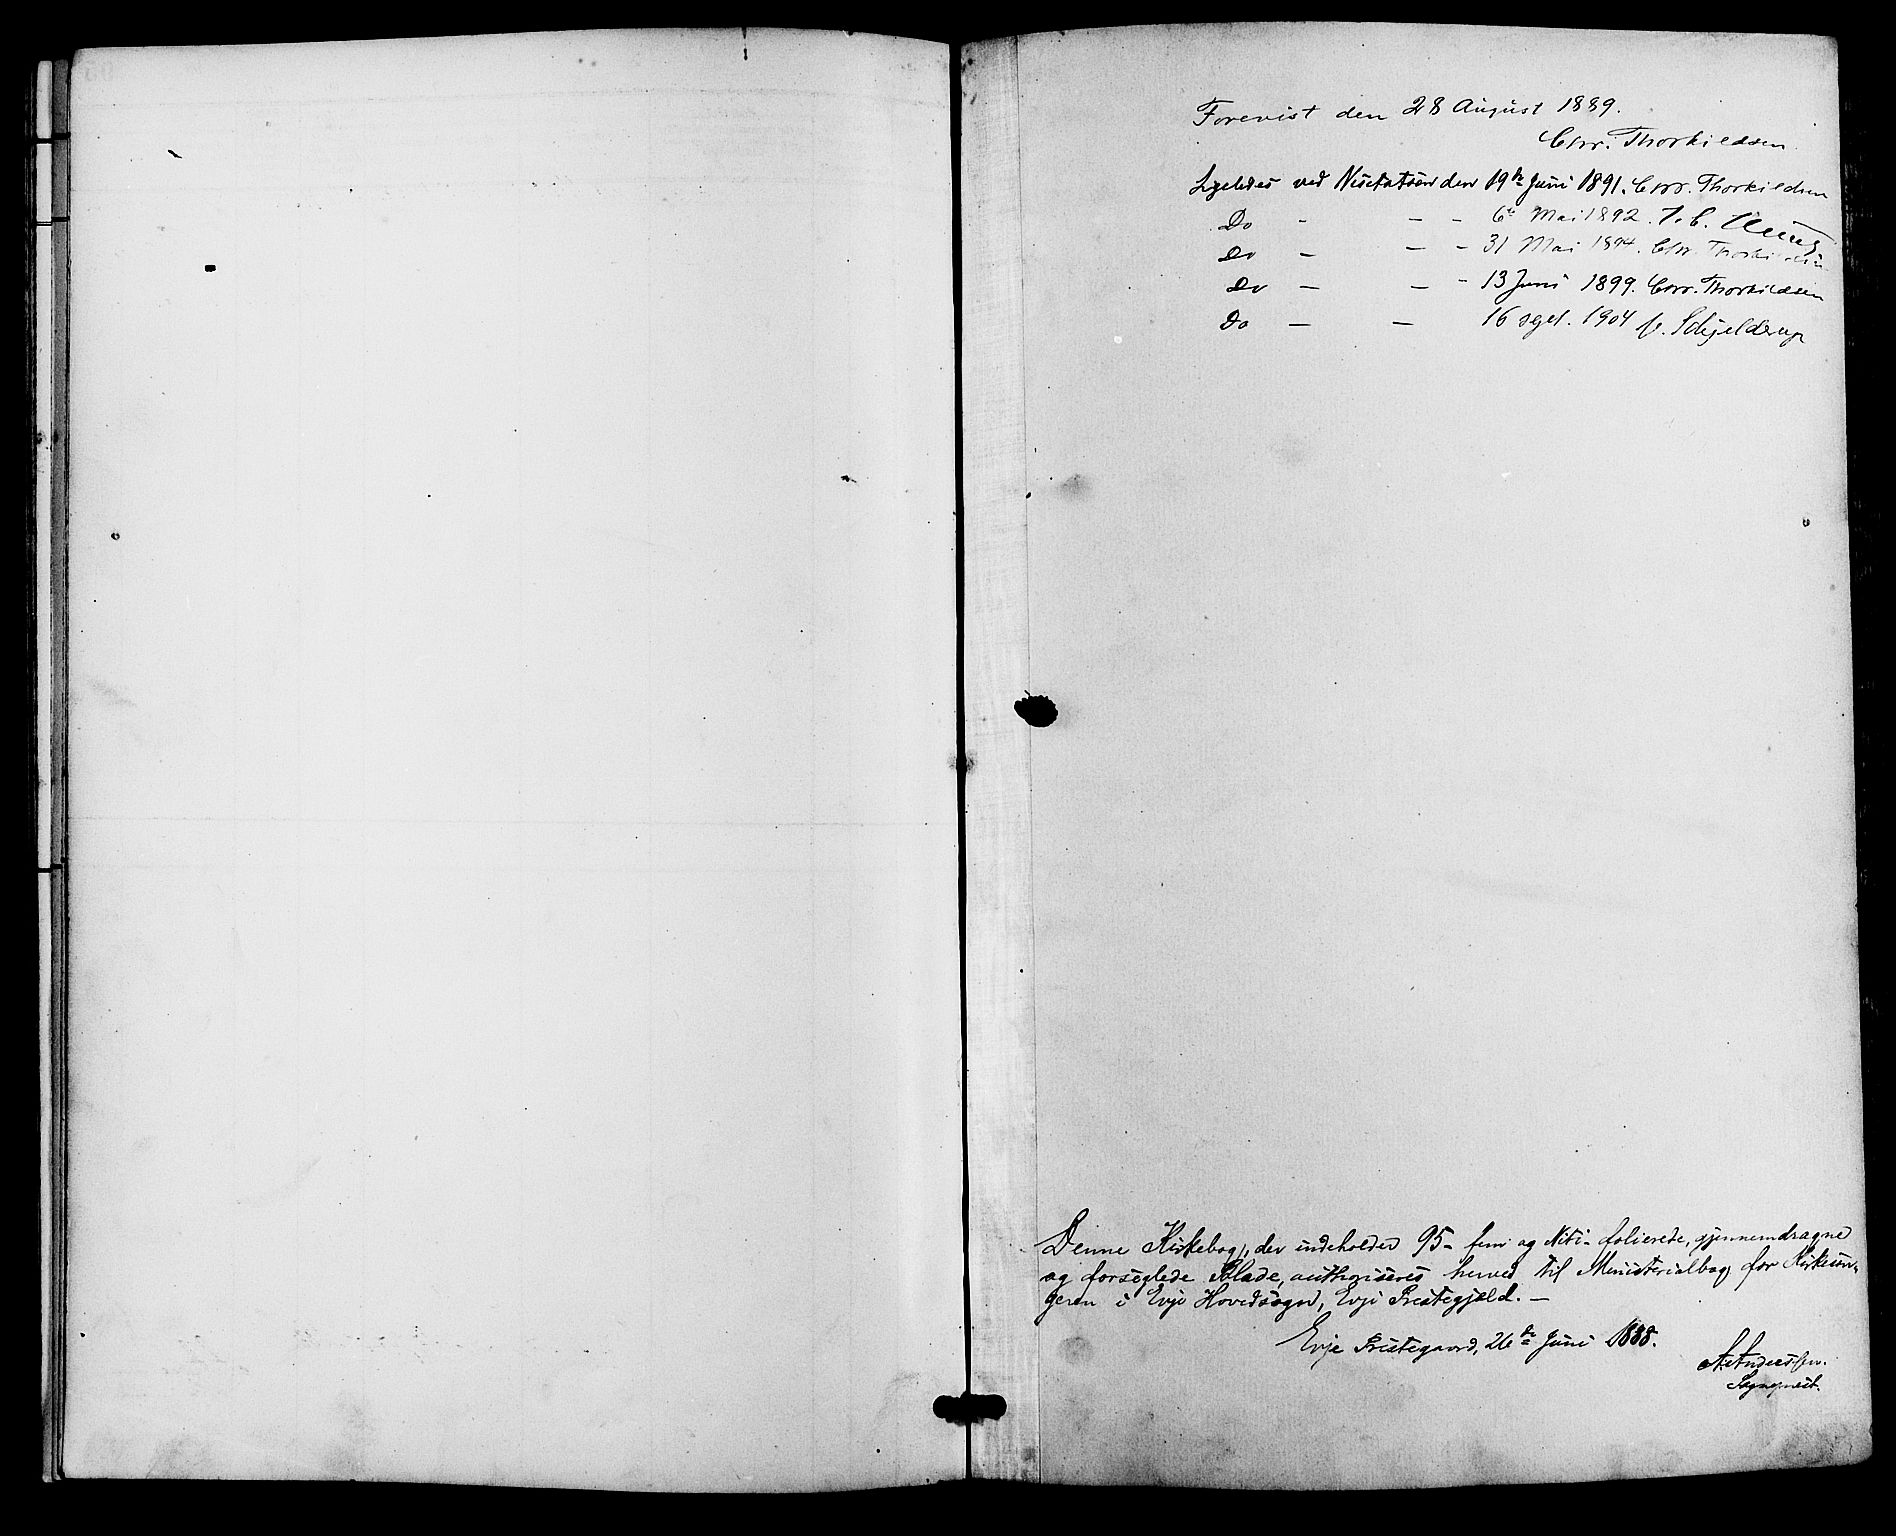 Forevist den 28 August 1889.
Chr. Thorkildsen.
Ligeledes ved Visitatsen den 19de Juni 1891. Chr. Thorkildsen
Do - - - 6te Mai 1892. J. C.
Do - - - 31 Mai 1894. Chr. Thorkildsen
Do - - - 13 Juni 1899. Chr. Thorkildsen
Do - - 16 sept. 1904 Schjelderup
Denne Kirkebog, der indeholder 95- fem og Niti- folierede, gjennemdragne
og forseglede Blade, authoriseres herved til Ministerialbog for Kirkesan-
geren i Evje Hovedsogn, Evje Prestegjæld. -
Evje Prestegaard, 26de Juni 1888.
A. Anderssen.
Sogneprest.